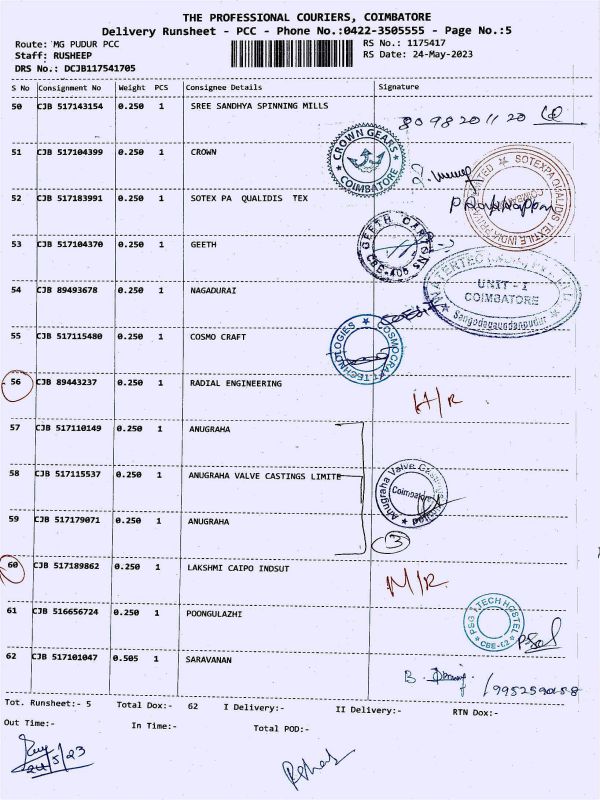 THE PROFESSIONAL COURIERS, COIMBATORE
Delivery Runsheet - PCC - Phone No.:0422-3505555 - Page No.:5
Route: MG PUDUR PCC RS No.: 1175417
Staff: RUSHEEP RS Date: 24-May-2023
DRS No.: DCJB117541705
S No Consignment No Weight PCS Consignee Details Signature
50 CJB 517143154 0.250 1 SREE SANDHYA SPINNING MILLS
8098201120
51 CJB 517104399 0.250 1 CROWN
CROWN GEARS COIMBATORE
52 CJB 517183991 0.250 1 SOTEX PA QUALIDIS TEX
53 CJB 517104370 0.250 1 GEETH
GEETH CARTONS CBE-
54 CJB 89493678 0.250 1 NAGADURAI
UNIT - I
COIMBATORE
55 CJB 517115480 0.250 1 COSMO CRAFT
COSMOCRAFT TECHNOLOGIES
56 CJB 89443237 0.250 1 RADIAL ENGINEERING
57 CJB 517110149 0.250 1 ANUGRAHA
58 CJB 517115537 0.250 1 ANUGRAHA VALVE CASTINGS LIMITE
Anugraha Valve Castings
Coimbatore
59 CJB 517179071 0.250 1 ANUGRAHA
3
60 CJB 517189862 0.250 1 LAKSHMI CAIPO INDSUT
M/R.
61 CJB 516656724 0.250 1 POONGULAZHI
PSG I TECH HOSTEL
CBE-62
62 CJB 517101047 0.505 1 SARAVANAN
B.
Tot. Runsheet:- 5 Total Dox:- 62 I Delivery:- II Delivery:- RTN Dox:-
Out Time:- In Time:- Total POD:-
24/5/23